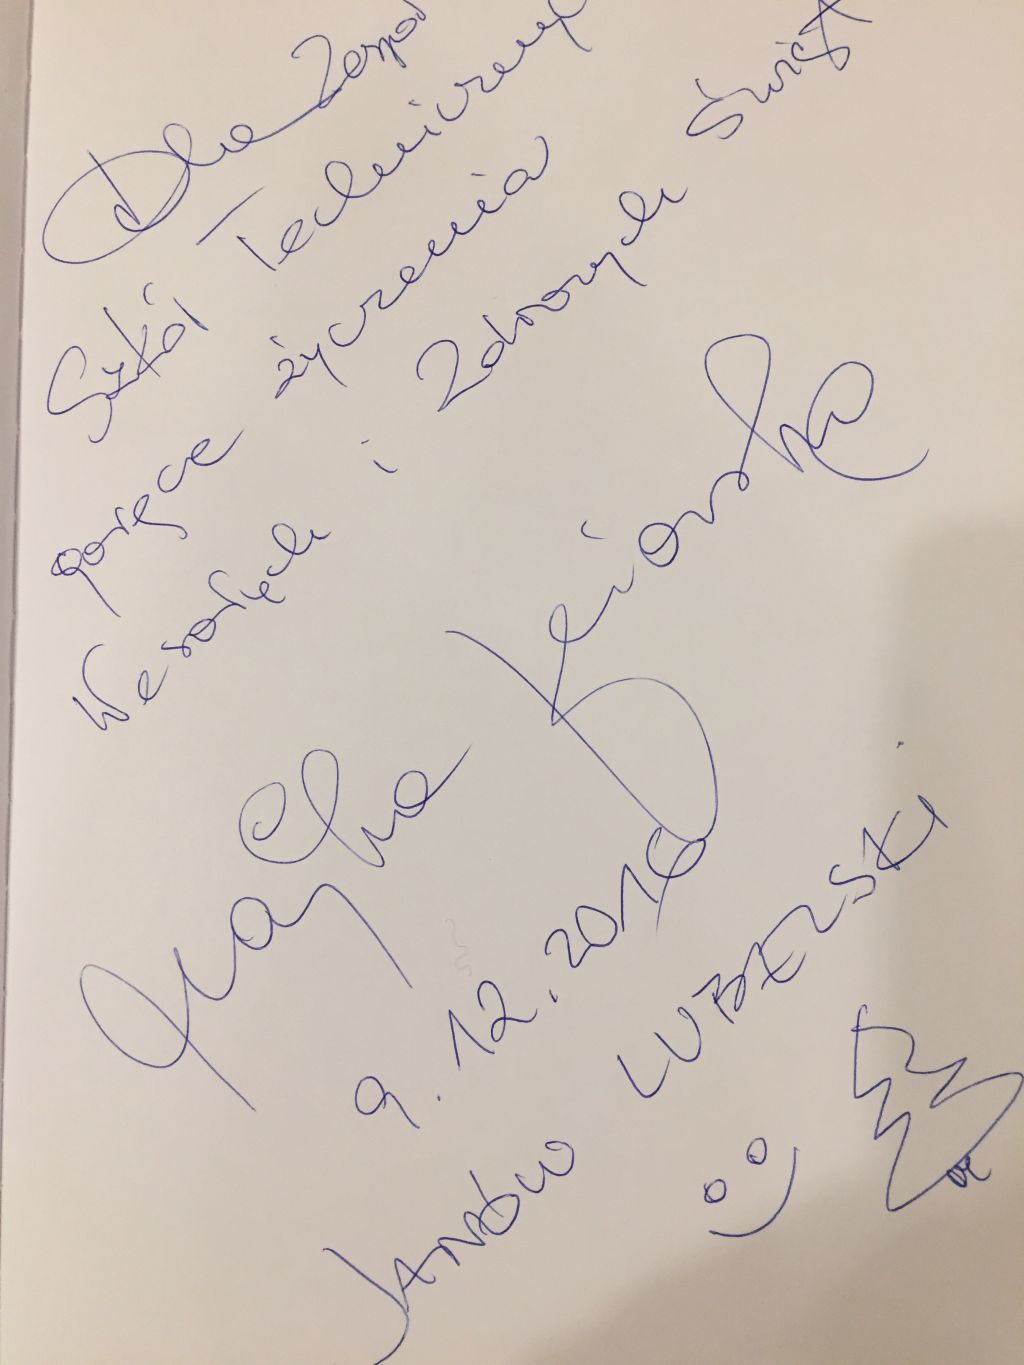 Dla Zespoł
Szkół Technicznyc
gorące życzenia
Wesołych i Zdrowych Świąt
Majka Jeżowska
9.12.2016
JANÓW LUBELSKI